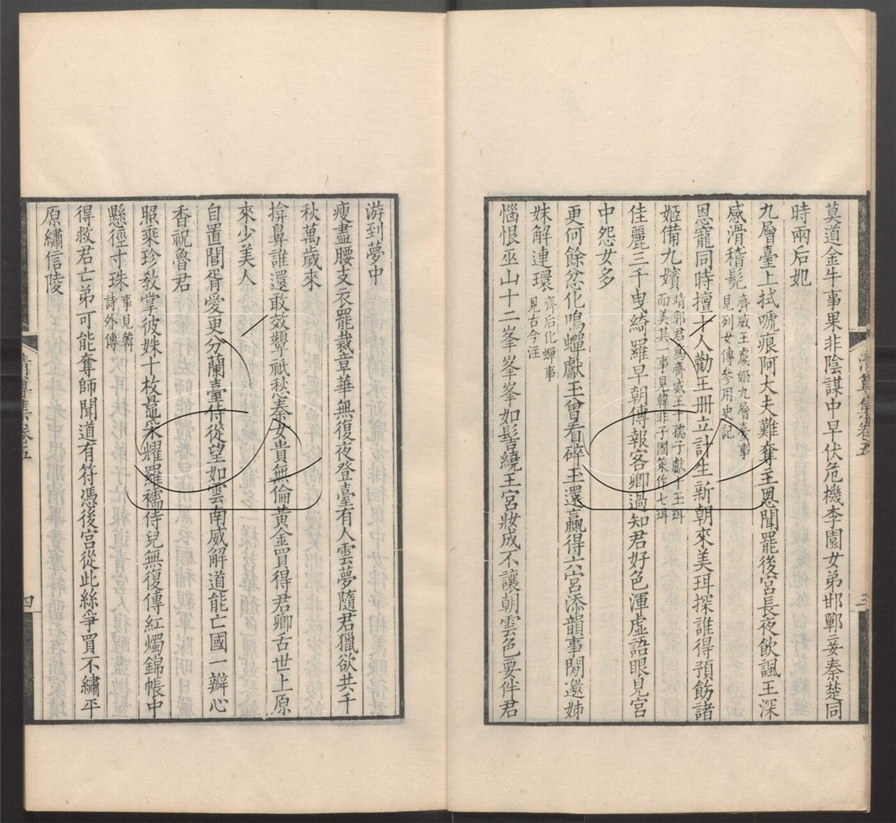 莫道金牛事果非陰謀中早伏危機李園女弟邯鄲妾秦楚同
時兩后妃
九層臺上拭嗁痕阿大夫難奪主恩聞罷後宮長夜飲諷王深
感滑稽髡
齊威王虞姬九層臺事
見列女傳參用史記
恩寵同時擅十人勸王冊立計生新朝來美珥探誰得預飭諸
姬備九嬪
靖郭君為齊威王十孺子獻十玉珥
而美其一事見韓非子國策作七珥
佳麗三千曳綺羅早朝傳報客卿過知君好色渾虛語眼見宮
中怨女多
更何餘忿化鳴蟬獻王曾看碎玉還贏得六宮添韻事閒邀姊
妹解連環
齊后化蟬事
見古今注
惱恨巫山十二峯峯峯如髻繞王宮妝成不讓朝雲色要伴君
三
游到夢中
瘦盡腰支衣罷裁章華無復夜登臺有人雲夢隨君獵欲共千
秋萬歲來
揜鼻誰還敢效顰祇愁秦女貴無倫黃金買得君卿舌世上原
來少美人
自置閭胥愛更分蘭臺侍從望如雲南威解道能亡國一瓣心
香祝魯君
照乘珍教掌彼姝十枚最采耀羅襦侍兒無復傳紅燭錦帳中
懸徑寸珠
事見韓
詩外傳
得救君亡弟可能奪師聞道有符憑後宮從此絲爭買不繡平
原繡信陵
四